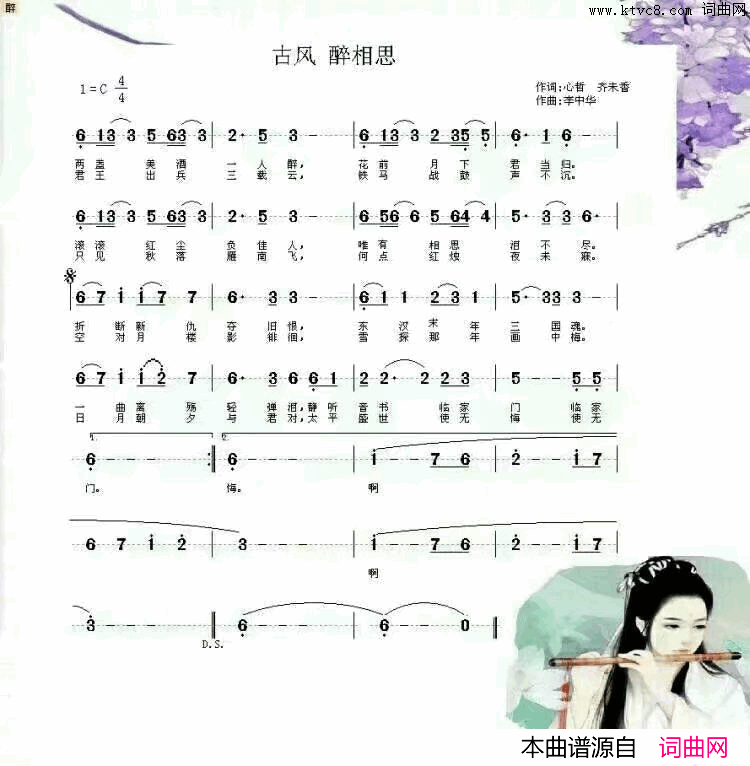 醉
www.ktvc8.com 词曲网
古风 醉相思
1=C 4/4
作词:心哲 齐未香
作曲:李中华
6 1 3 3 5 6 3 3 | 2· 5 3 - | 6 1 3 3 2 3 5 5 | 6· 1 6 - |
两盏 美酒 一人醉, 花前 月下 君当归。
君王 出兵 三载云, 铁马 战鼓 声不沉。
6 1 3 3 5 6 3 3 | 2· 5 3 - | 6 5 6 6 5 6 4 4 | 5· 3 3 6· |
滚滚 红尘 负佳人, 唯有 相思 泪不尽。
只见 秋落 雁南飞, 何点 红烛 夜未寐。
6 7 i i 7 7 | 6· 3 3 | 6 1 1 2 3 1 | 5· 3 3 3 |
折断新仇 夺旧恨, 东汉末年 三国魂。
空对月楼 影徘徊, 雪探那年 画中梅。
6 7 i i 2 | 6· 3 3 6 1 | 2 2· 2 3 | 5 - 5 5 |
一曲离殇 轻弹泪,静听 音书 临家 门 临家
日月朝夕 与君对,太平 盛世 使无 悔 使无
1.
2.
6 - - - :| 6 - - - | i - 7 6 | 2 - i 7 |
门。 悔。 啊
6 7 i 2 | 3 - - - | i - 7 6 | 2 - i 7 |
啊
3 - - - || 6 - - - | 6 - 0 ||
D.S.
本曲谱源自 词曲网